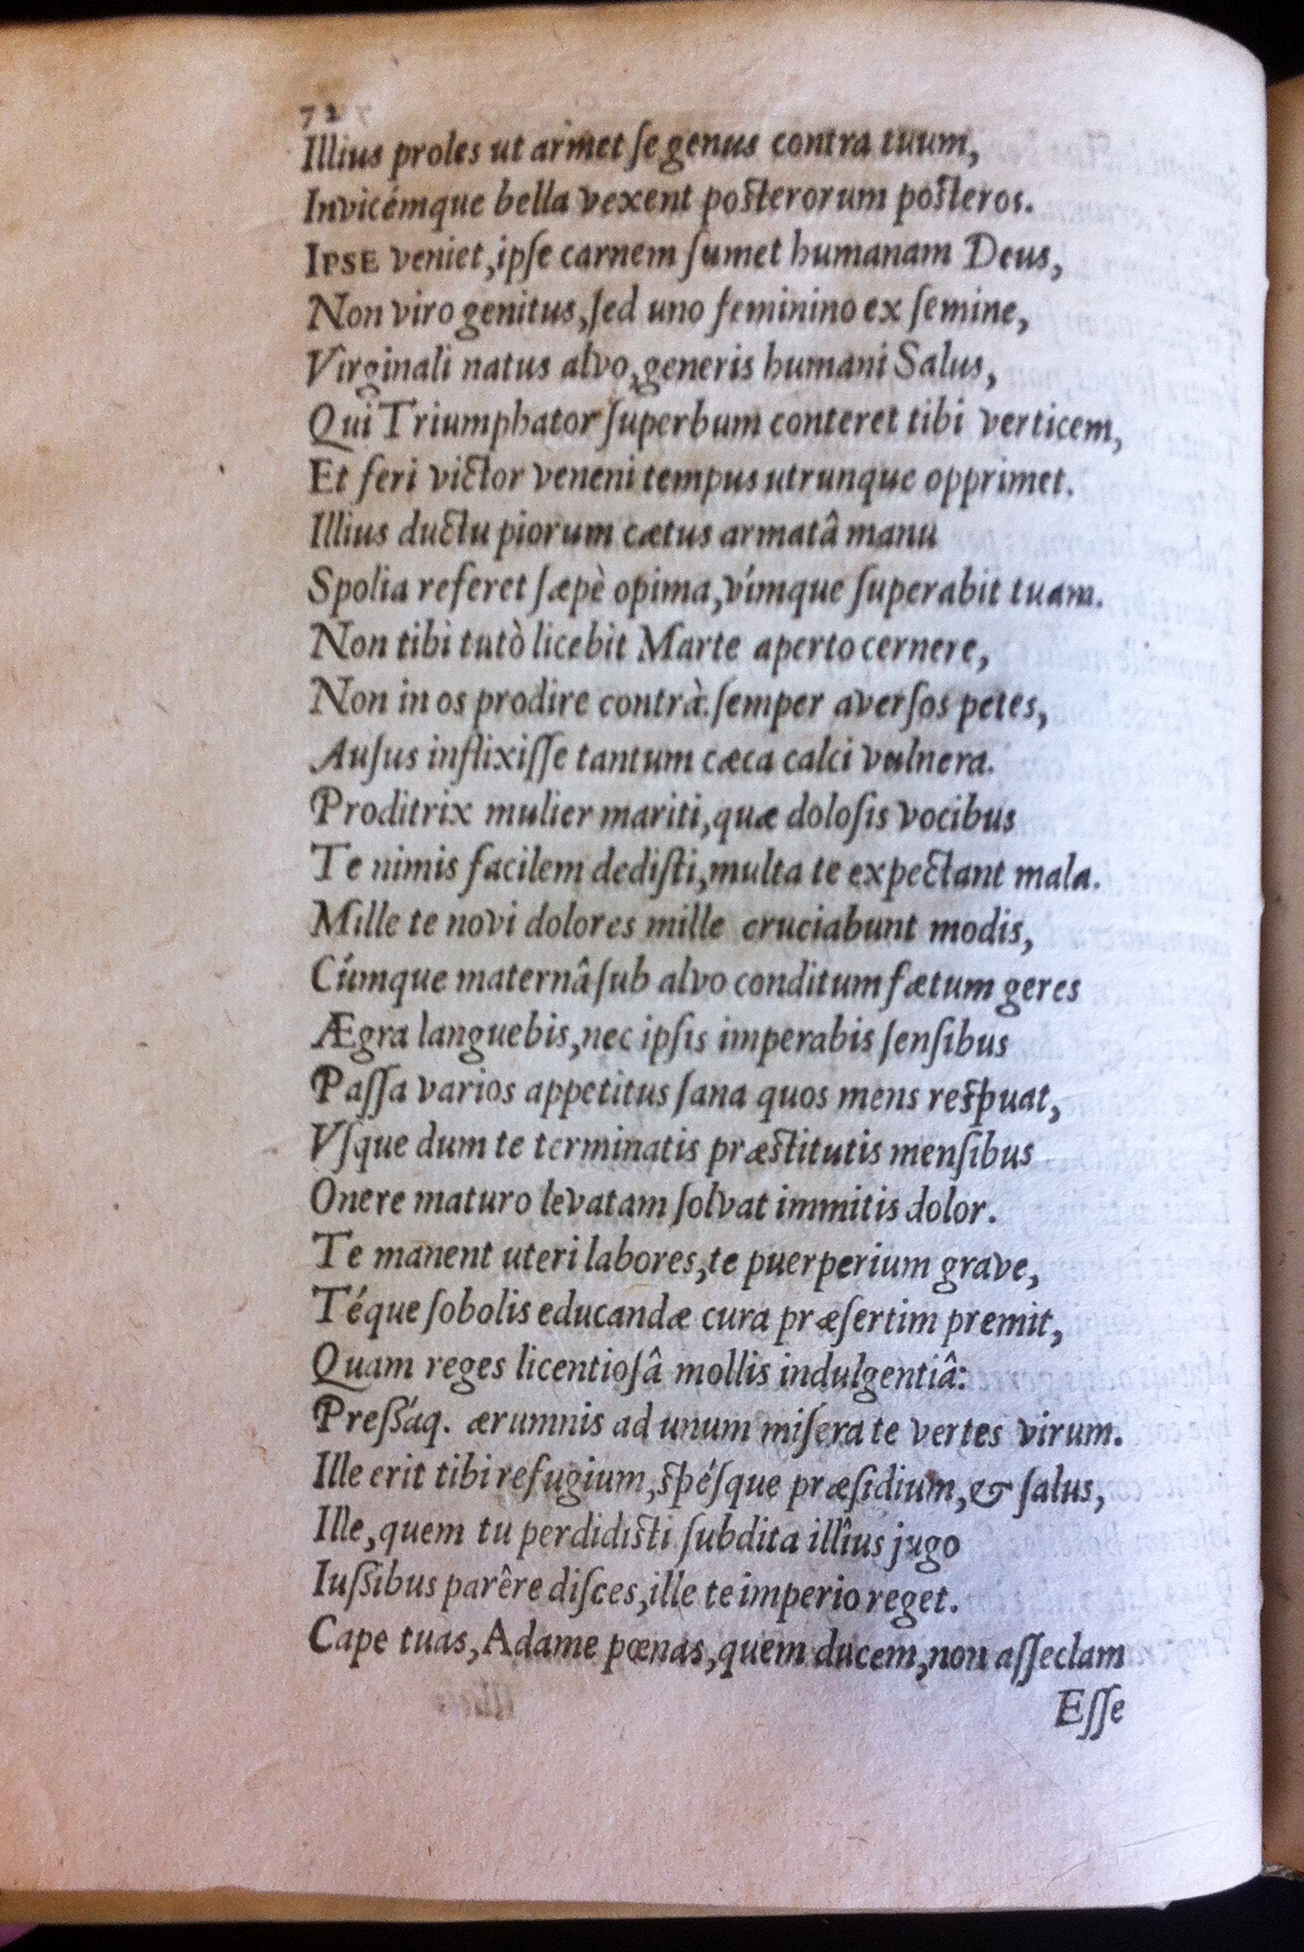 72
Illius proles ut armet se genus contra tuum,
Invicémque bella vexent posterorum posteros.
IPSE veniet, ipse carnem sumet humanam Deus,
Non viro genitus, sed uno feminino ex semine,
Virginali natus alvo, generis humani Salus,
Qui Triumphator superbum conteret tibi verticem,
Et feri victor veneni tempus utrunque opprimet.
Illius ductu piorum cætus armatâ manu
Spolia referet sæpè opima, vímque superabit tuam.
Non tibi tutò licebit Marte aperto cernere,
Non in os prodire contrà: semper aversos petes,
Ausus inflixisse tantum cæca calci vulnera.
Proditrix mulier mariti, quæ dolosis vocibus
Te nimis facilem dedisti, multa te expectant mala.
Mille te novi dolores mille cruciabunt modis,
Cúmque maternâ sub alvo conditum fætum geres
Ægra languebis, nec ipsis imperabis sensibus
Passa varios appetitus sana quos mens respuat,
Vsque dum te terminatis præstitutis mensibus
Onere maturo levatam solvat immitis dolor.
Te manent uteri labores, te puerperium grave,
Téque sobolis educandæ cura præsertim premit,
Quam reges licentiosâ mollis indulgentiâ:
Pressáq. ærumnis ad unum misera te vertes virum.
Ille erit tibi refugium, spésque præsidium, & salus,
Ille, quem tu perdidisti subdita illîus jugo
Iussibus parêre disces, ille te imperio reget.
Cape tuas, Adame pœnas, quem ducem, non asseclam
Esse